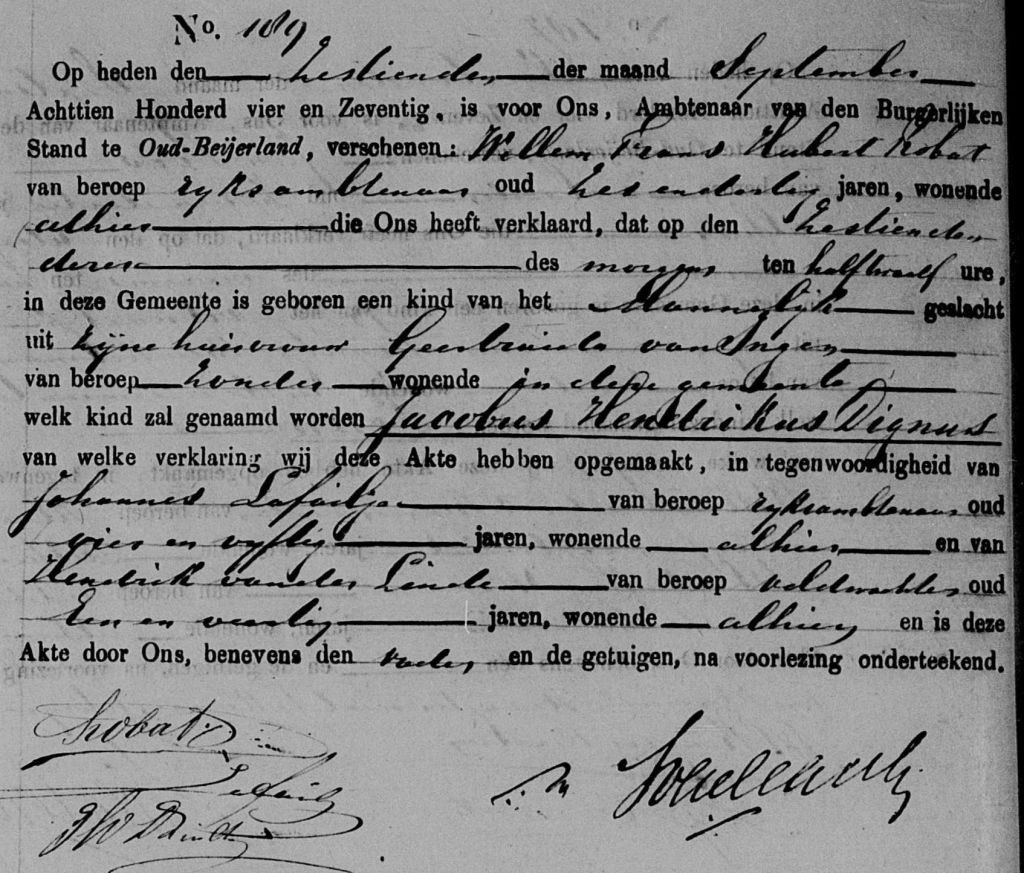 No. 189
Op heden den zestienden der maand September
Achttien Honderd vier en Zeventig, is voor Ons, Ambtenaar van den Burgerlijken
Stand te Oud-Beijerland, verschenen: Willem Frans Hubert Robat
van beroep ryksambtenaar oud zes en dertig jaren, wonende
alhier die Ons heeft verklaard, dat op den zestienden
dezer des morgens ten half twaalf ure,
in deze Gemeente is geboren een kind van het Mannelijk geslacht
uit zijne huisvrouw Geertruida van Ingen
van beroep zonder wonende in deze gemeente
welk kind zal genaamd worden Jacobus Hendrikus Dignus
van welke verklaring wij deze Akte hebben opgemaakt, in tegenwoordigheid van
Johannes Lafailje van beroep ryksambtenaar oud
vier en vyftig jaren, wonende alhier en van
Hendrik van der Linde van beroep veldwachter oud
Een en veertig jaren, wonende alhier en is deze
Akte door Ons, benevens den vader en de getuigen, na voorlezing onderteekend.
Robat